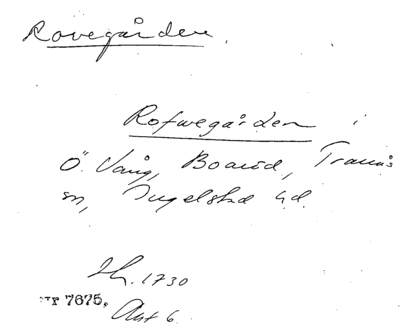 Rovegården.
Rofwegården i
Ö. Vång, Boarid, Tranås
sn, Ingelstad hd.
Lh. 1730
7675.
Ant 6.